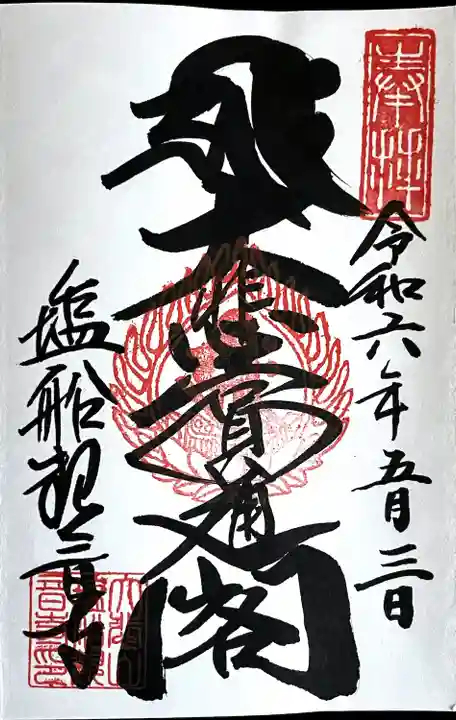 奉拝
令和六年五月三日
大悲圓通閣
塩船観音寺